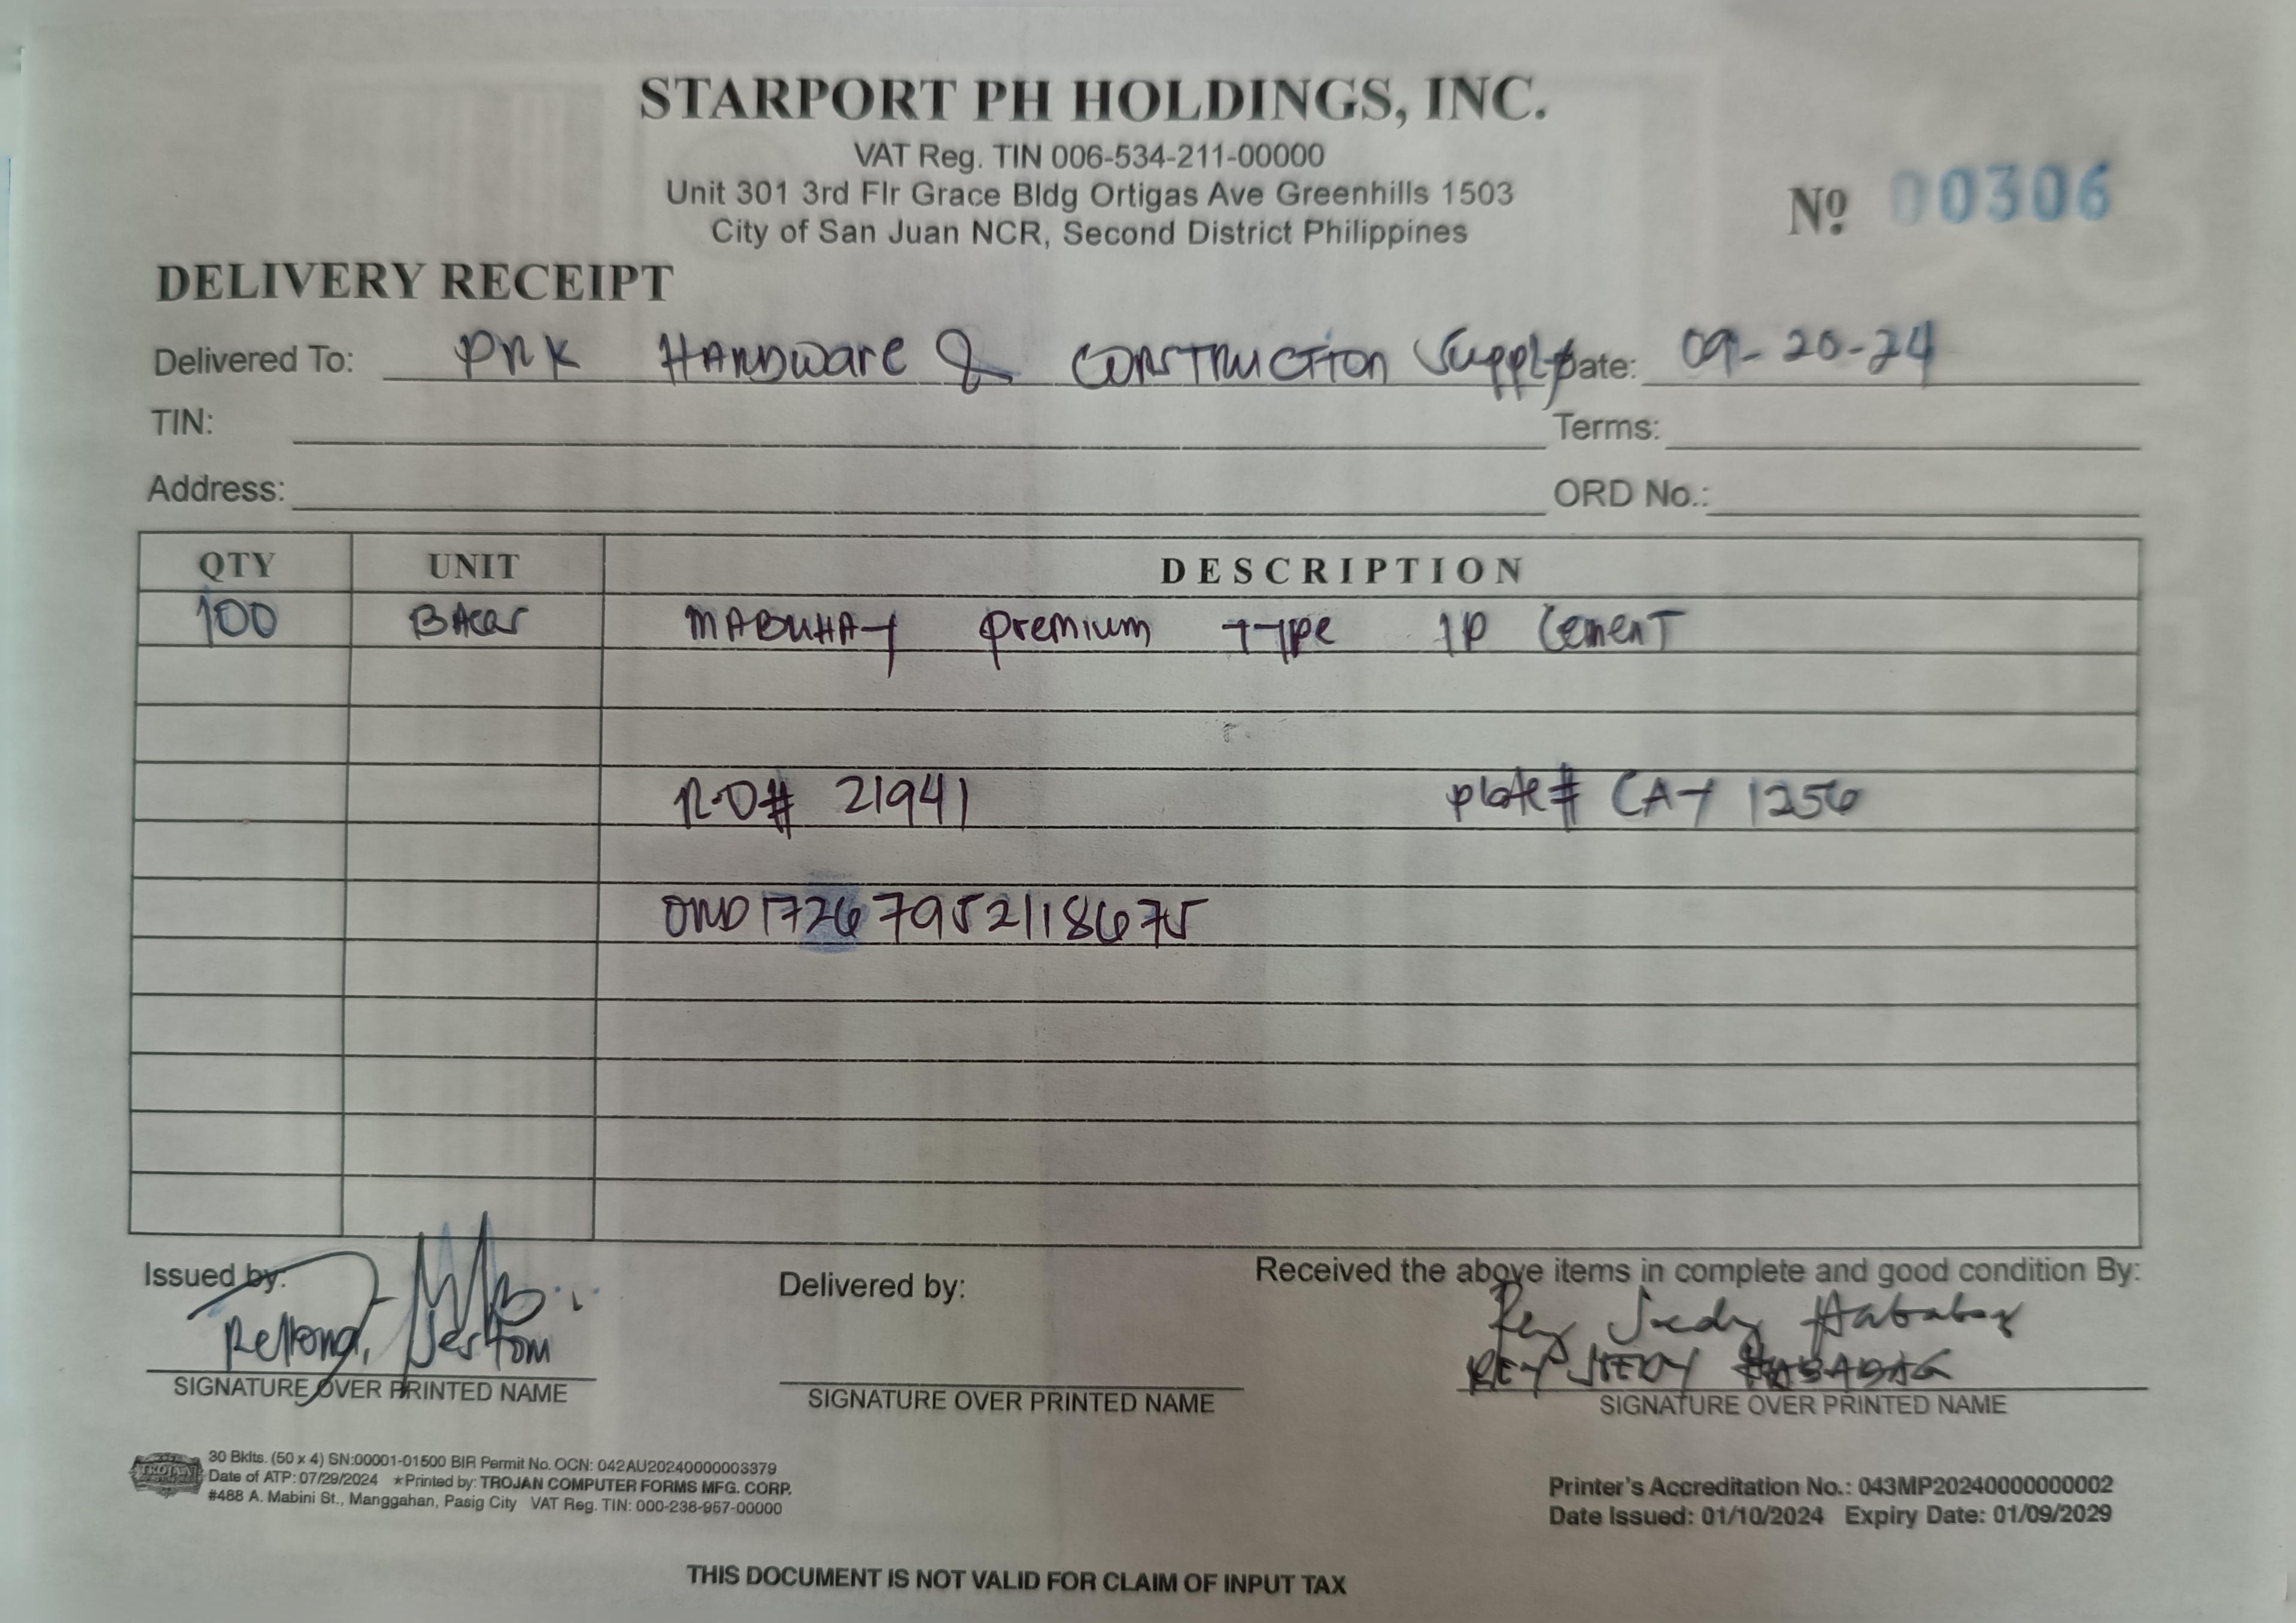 STARPORT PH HOLDINGS, INC.
VAT Reg. TIN 006-534-211-00000
Unit 301 3rd Flr Grace Bldg Ortigas Ave Greenhills 1503
City of San Juan NCR, Second District Philippines
Nº 00306
DELIVERY RECEIPT
Delivered To: PRK HARDware & CONSTRUCTION Supply Date: 09-20-24
TIN: Terms:
Address: ORD No.:
QTY UNIT DESCRIPTION
100 BAGS MABUHAY premium TYPE 1P CemenT
R.O# 21941 plate# CAY 1256
ORD17267952118675
Issued by: Delivered by: Received the above items in complete and good condition By:
Rey Jredy Hababag
Jestom REY JREDY HABABAG
SIGNATURE OVER PRINTED NAME SIGNATURE OVER PRINTED NAME SIGNATURE OVER PRINTED NAME
TROJAN
30 Bklts. (50 x 4) SN:00001-01500 BIR Permit No. OCN: 042AU20240000003379
Date of ATP: 07/29/2024 ★Printed by: TROJAN COMPUTER FORMS MFG. CORP.
#488 A. Mabini St., Manggahan, Pasig City VAT Reg. TIN: 000-238-957-00000
Printer's Accreditation No.: 043MP20240000000002
Date Issued: 01/10/2024 Expiry Date: 01/09/2029
THIS DOCUMENT IS NOT VALID FOR CLAIM OF INPUT TAX